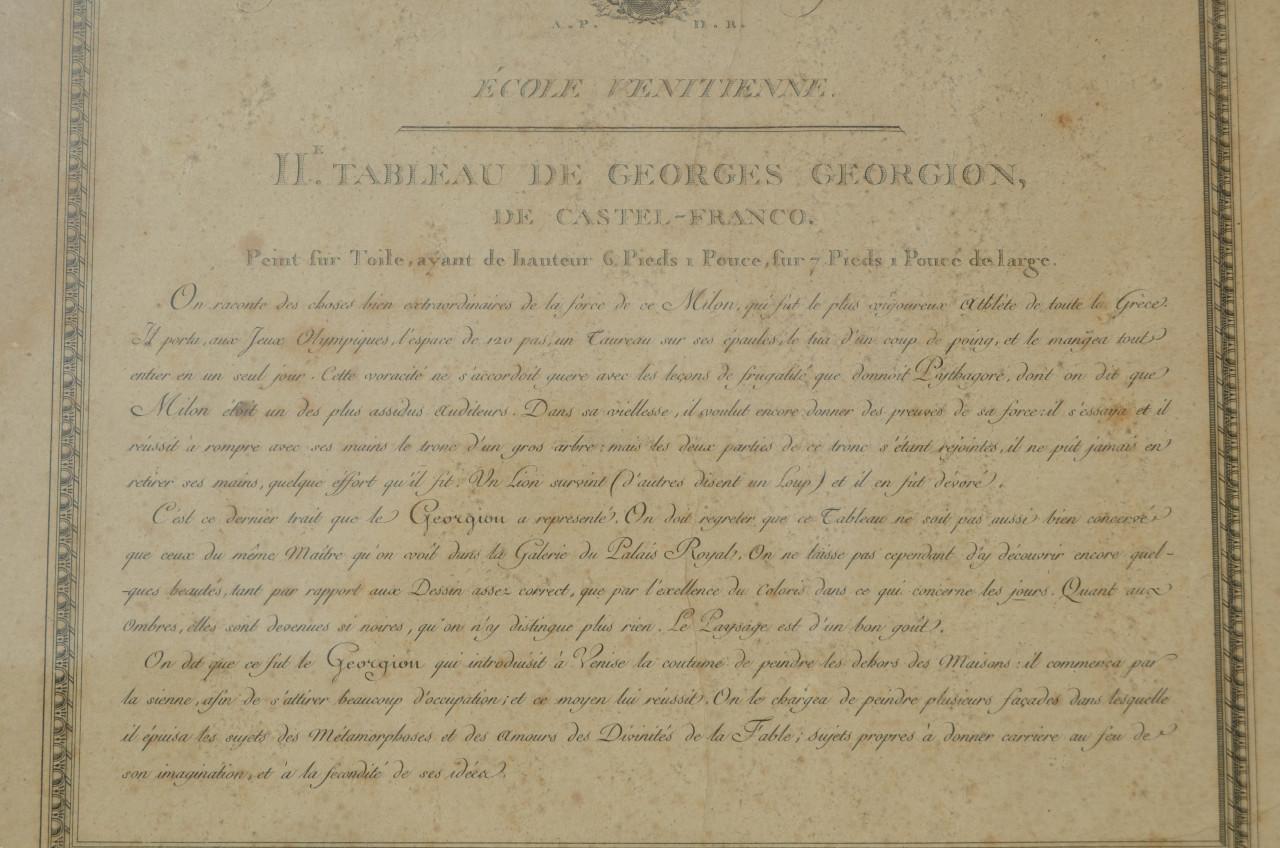 A. P. D. R.
ÉCOLE VENITIENNE.
II.E TABLEAU DE GEORGES GEORGION,
DE CASTEL-FRANCO.
Peint sur Toile, ayant de hauteur 6 Pieds 1 Pouce, sur 7 Pieds 1 Pouce de large.
On raconte des choses bien extraordinaires de la force de ce Milon, qui fut le plus vigoureux Athlète de toute la Grèce.
Il porta, aux Jeux Olympiques, l'espace de 120 pas, un Taureau sur ses épaules, le tua d'un coup de poing, et le mangea tout
entier en un seul jour. Cette voracité ne s'accordoit guere avec les leçons de frugalité que donnoit Pythagore, dont on dit que
Milon étoit un des plus assidus Auditeurs. Dans sa viellesse, il voulut encore donner des preuves de sa force: il s'essaya et il
réussit à rompre avec ses mains le tronc d'un gros arbre: mais les deux parties de ce tronc s'étant rejointes, il ne pût jamais en
retirer ses mains, quelque éffort qu'il fit. Un Lion survint (d'autres disent un Loup) et il en fut dévoré.
C'est ce dernier trait que le Georgion a representé. On doit regreter que ce Tableau ne soit pas aussi bien concervé
que ceux du même Maitre qu'on voit dans la Galerie du Palais Royal. On ne laisse pas cependant d'y découvrir encore quel-
-ques beautés, tant par rapport aux Dessin assez correct, que par l'exellence du Coloris dans ce qui concerne les jours. Quant aux
Ombres, élles sont devenues si noires, qu'on n'y distingue plus rien. Le Paysage est d'un bon goût.
On dit que ce fut le Georgion qui introduisit à Venise la coutume de peindre les dehors des Maisons: il commença par
la sienne, afin de s'attirer beaucoup d'occupation; et ce moyen lui réussit. On le chargea de peindre plusieurs façades dans lesquelle
il épuisa les sujets des Métamorphoses et des Amours des Divinités de la Fable; sujets propres à donner carriere au feu de
son imagination, et à la fecondité de ses idées.